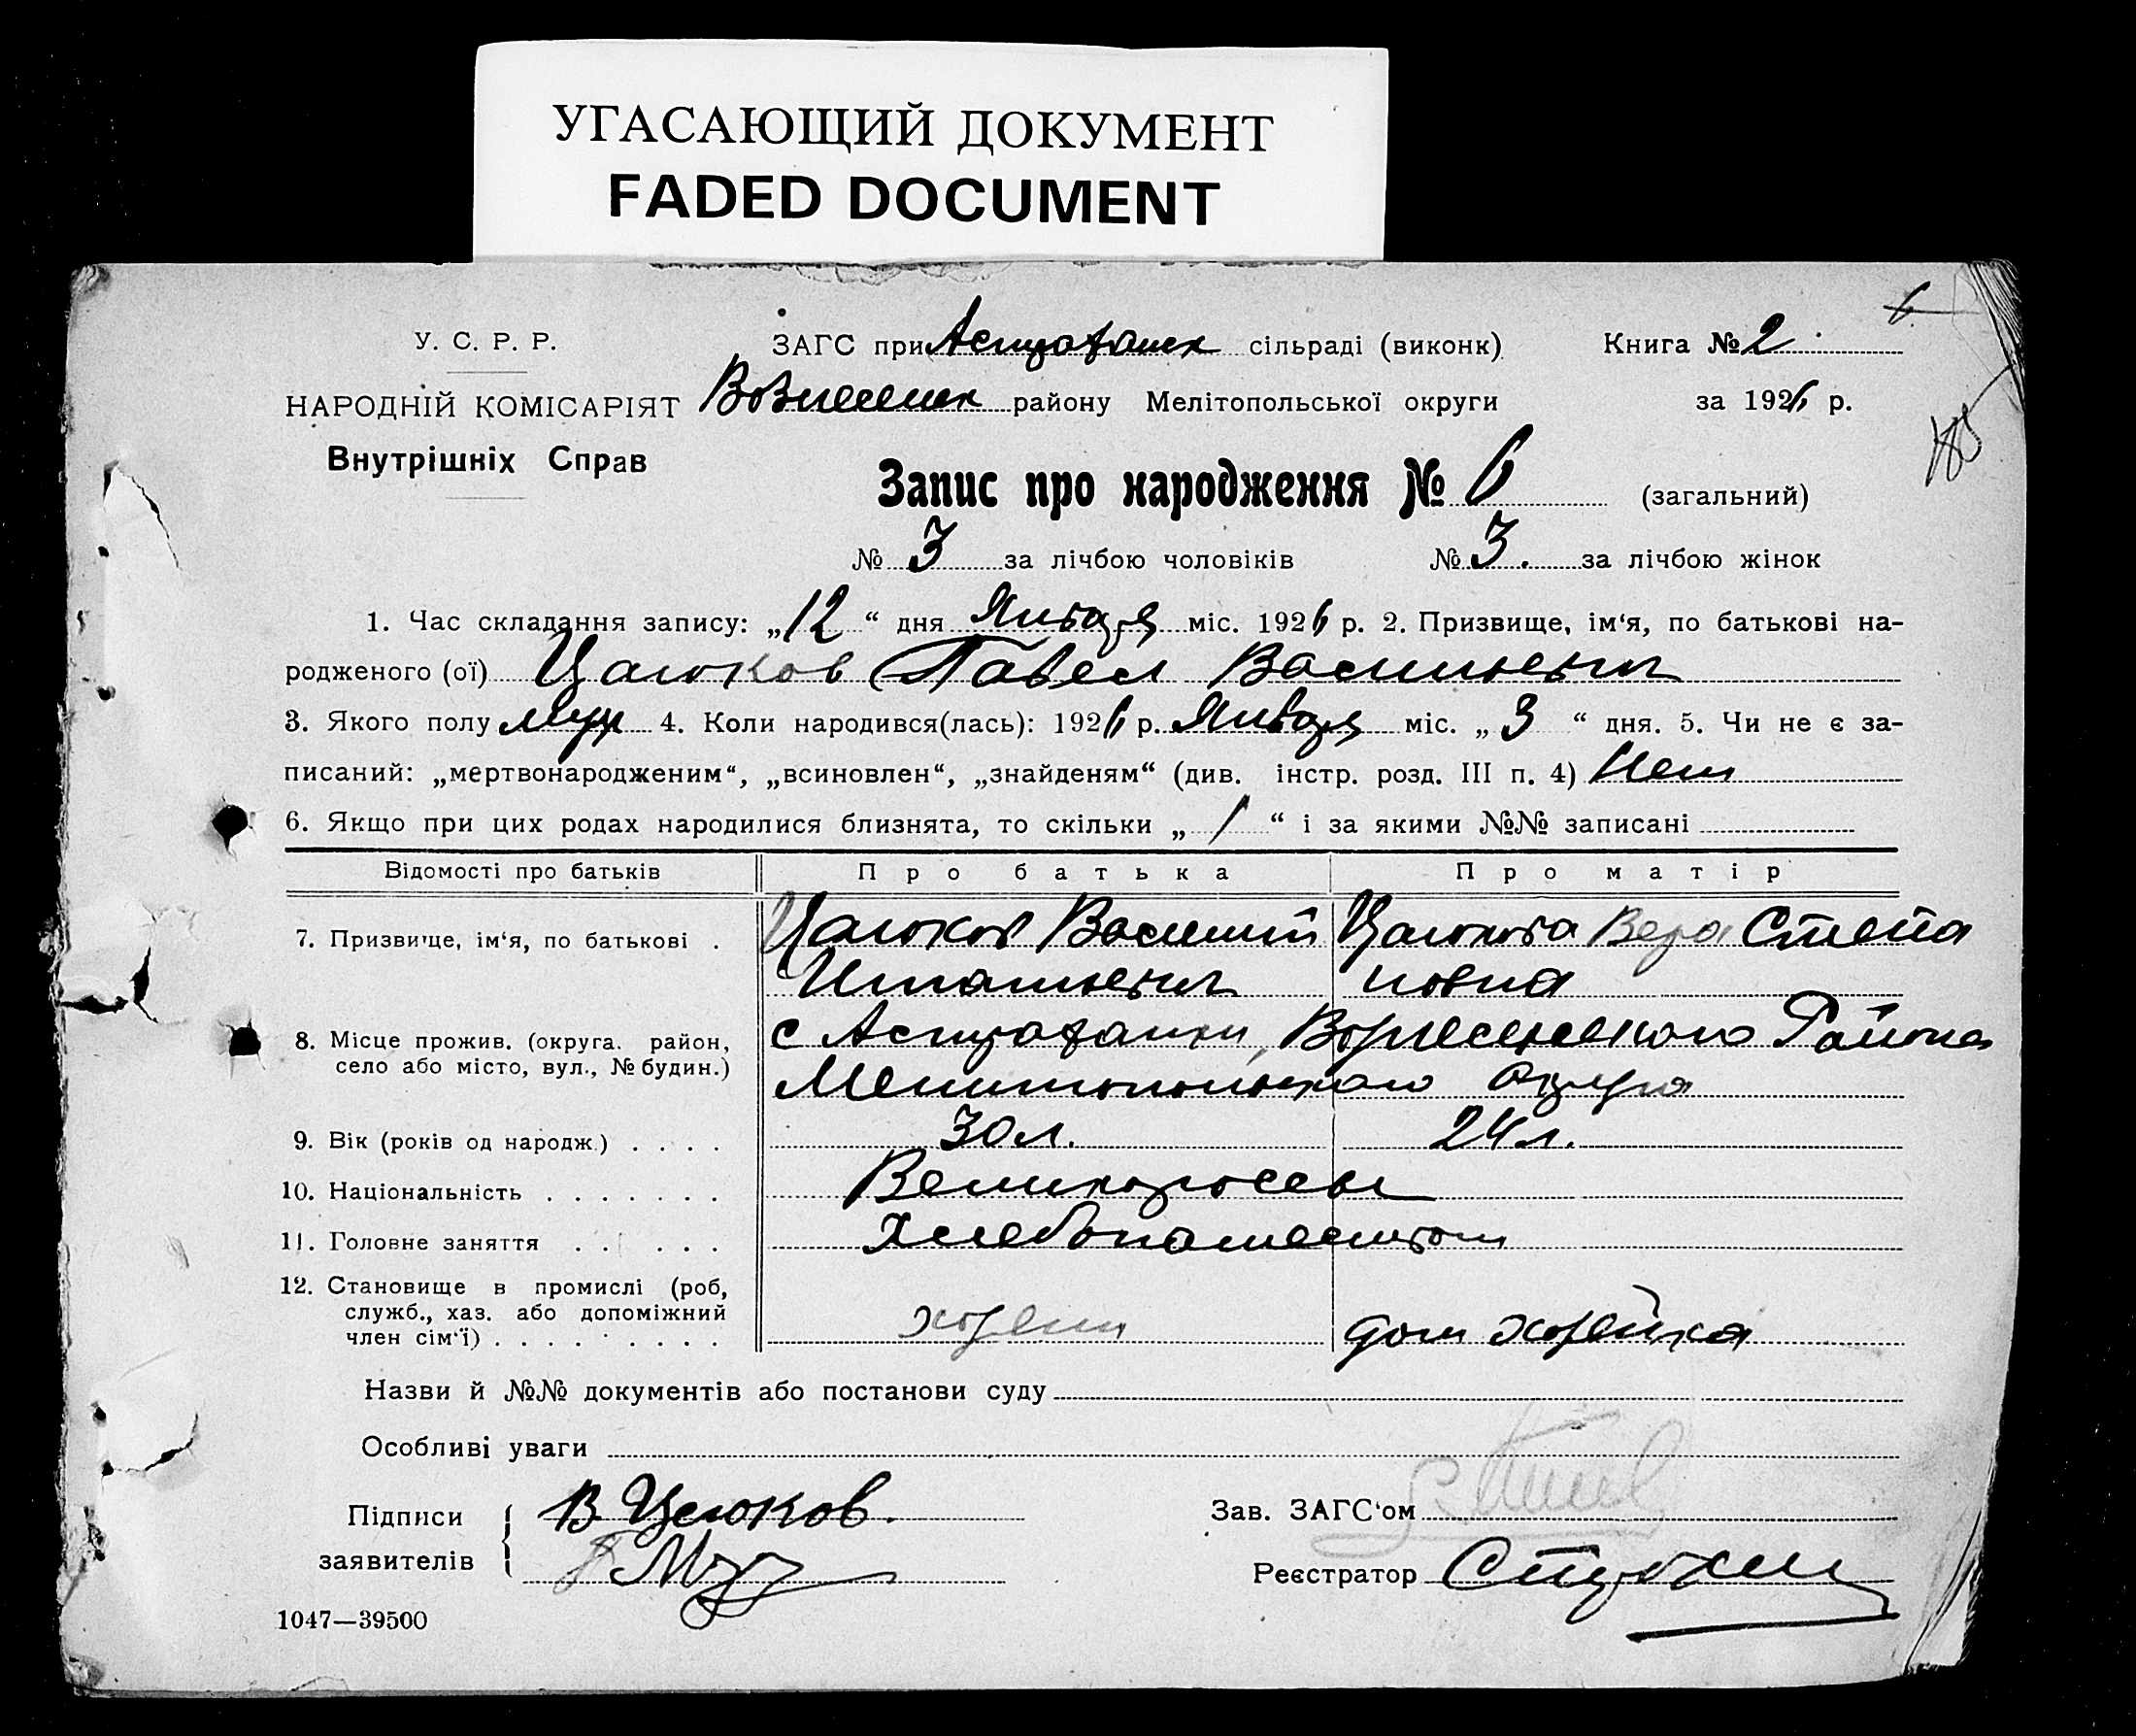 УГАСАЮЩИЙ ДОКУМЕНТ
FADED DOCUMENT
6
У. С. Р. Р. ЗАГС при Астраханск сільраді (виконк) Книга № 2
НАРОДНІЙ КОМІСАРІЯТ Вознесенск району Мелітопольської округи за 1926 р.
Внутрішніх Справ
Запис про народження № 6 (загальний)
№ 3 за лічбою чоловіків № 3. за лічбою жінок
1. Час складання запису: „12“ дня Января міс. 1926 р. 2. Призвище, ім‘я, по батькові на-
родженого (ої) Цалюков Павел Васильевич
3. Якого полу Муж 4. Коли народився(лась): 1926 р. Января міс. „3“ дня. 5. Чи не є за-
писаний: „мертвонародженим“, „всиновлен“, „знайденям“ (див. інстр. розд. III п. 4) Нет
6. Якщо при цих родах народилися близнята, то скільки „ / “ і за якими №№ записані
Відомості про батьків Про батька Про матір
7. Призвище, ім‘я, по батькові . Цалюков Василий Цалюкова Вера Степа
Игнатьевич новна
8. Місце прожив. (округа. район, с Астраханки, Вознесенского Района
село або місто, вул., № будин.) Мелитопольского Округа
9. Вік (років од народж.) . . . . 30 л. 24 л.
10. Національність . . . . . . . Великороссы
11. Головне заняття . . . . . Хлебопашеством
12. Становище в промислі (роб,
служб., хаз. або допоміжний
член сім‘ї) . . . . . . . . хозяин дом хозяйка
Назви й №№ документів або постанови суду
Особливі уваги
Підписи В Цалюков. Зав. ЗАГС‘ом
заявителів Реєстратор
1047—39500